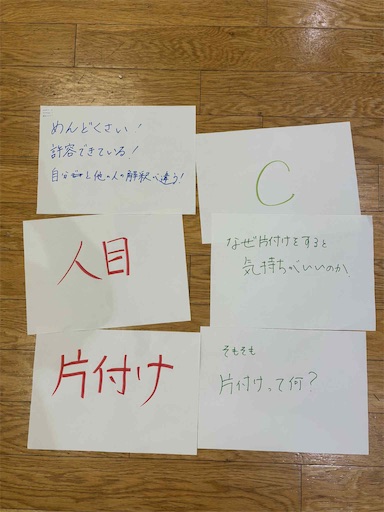 めんどくさい!
許容できている!
自分と他の人の解釈が違う!
C
人目
なぜ片付けをすると
気持ちがいいのか
片付け
そもそも
片付けって何?